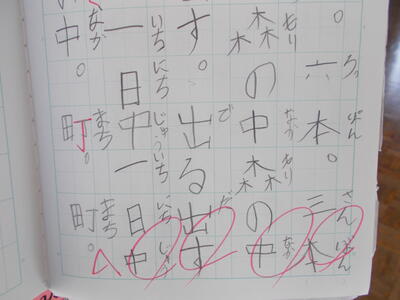 。六本。三本
ろっぽん さんぼん
森の中森の中
もり なか もり なか
す。出る出す
で だ
一日中一日中
いちにちじゅういちにちじゅう
中。町。町。
なか まち まち